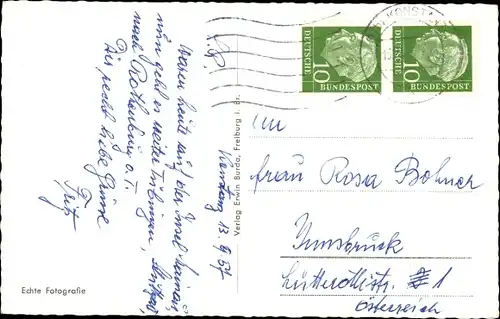 Konstanz 13.9.57
Waren heute auf der Insel Mainau
nun geht es weiter Tübingen,
nach Rothenburg o. T.
Dir recht liebe Grüße
Fritz
Echte Fotografie
Verlag Erwin Burda, Freiburg i. Br.
KONSTANZ
DEUTSCHE
BUNDESPOST
10
DEUTSCHE
BUNDESPOST
10
Frau Rosa Bohner
Innsbruck
1
Österreich